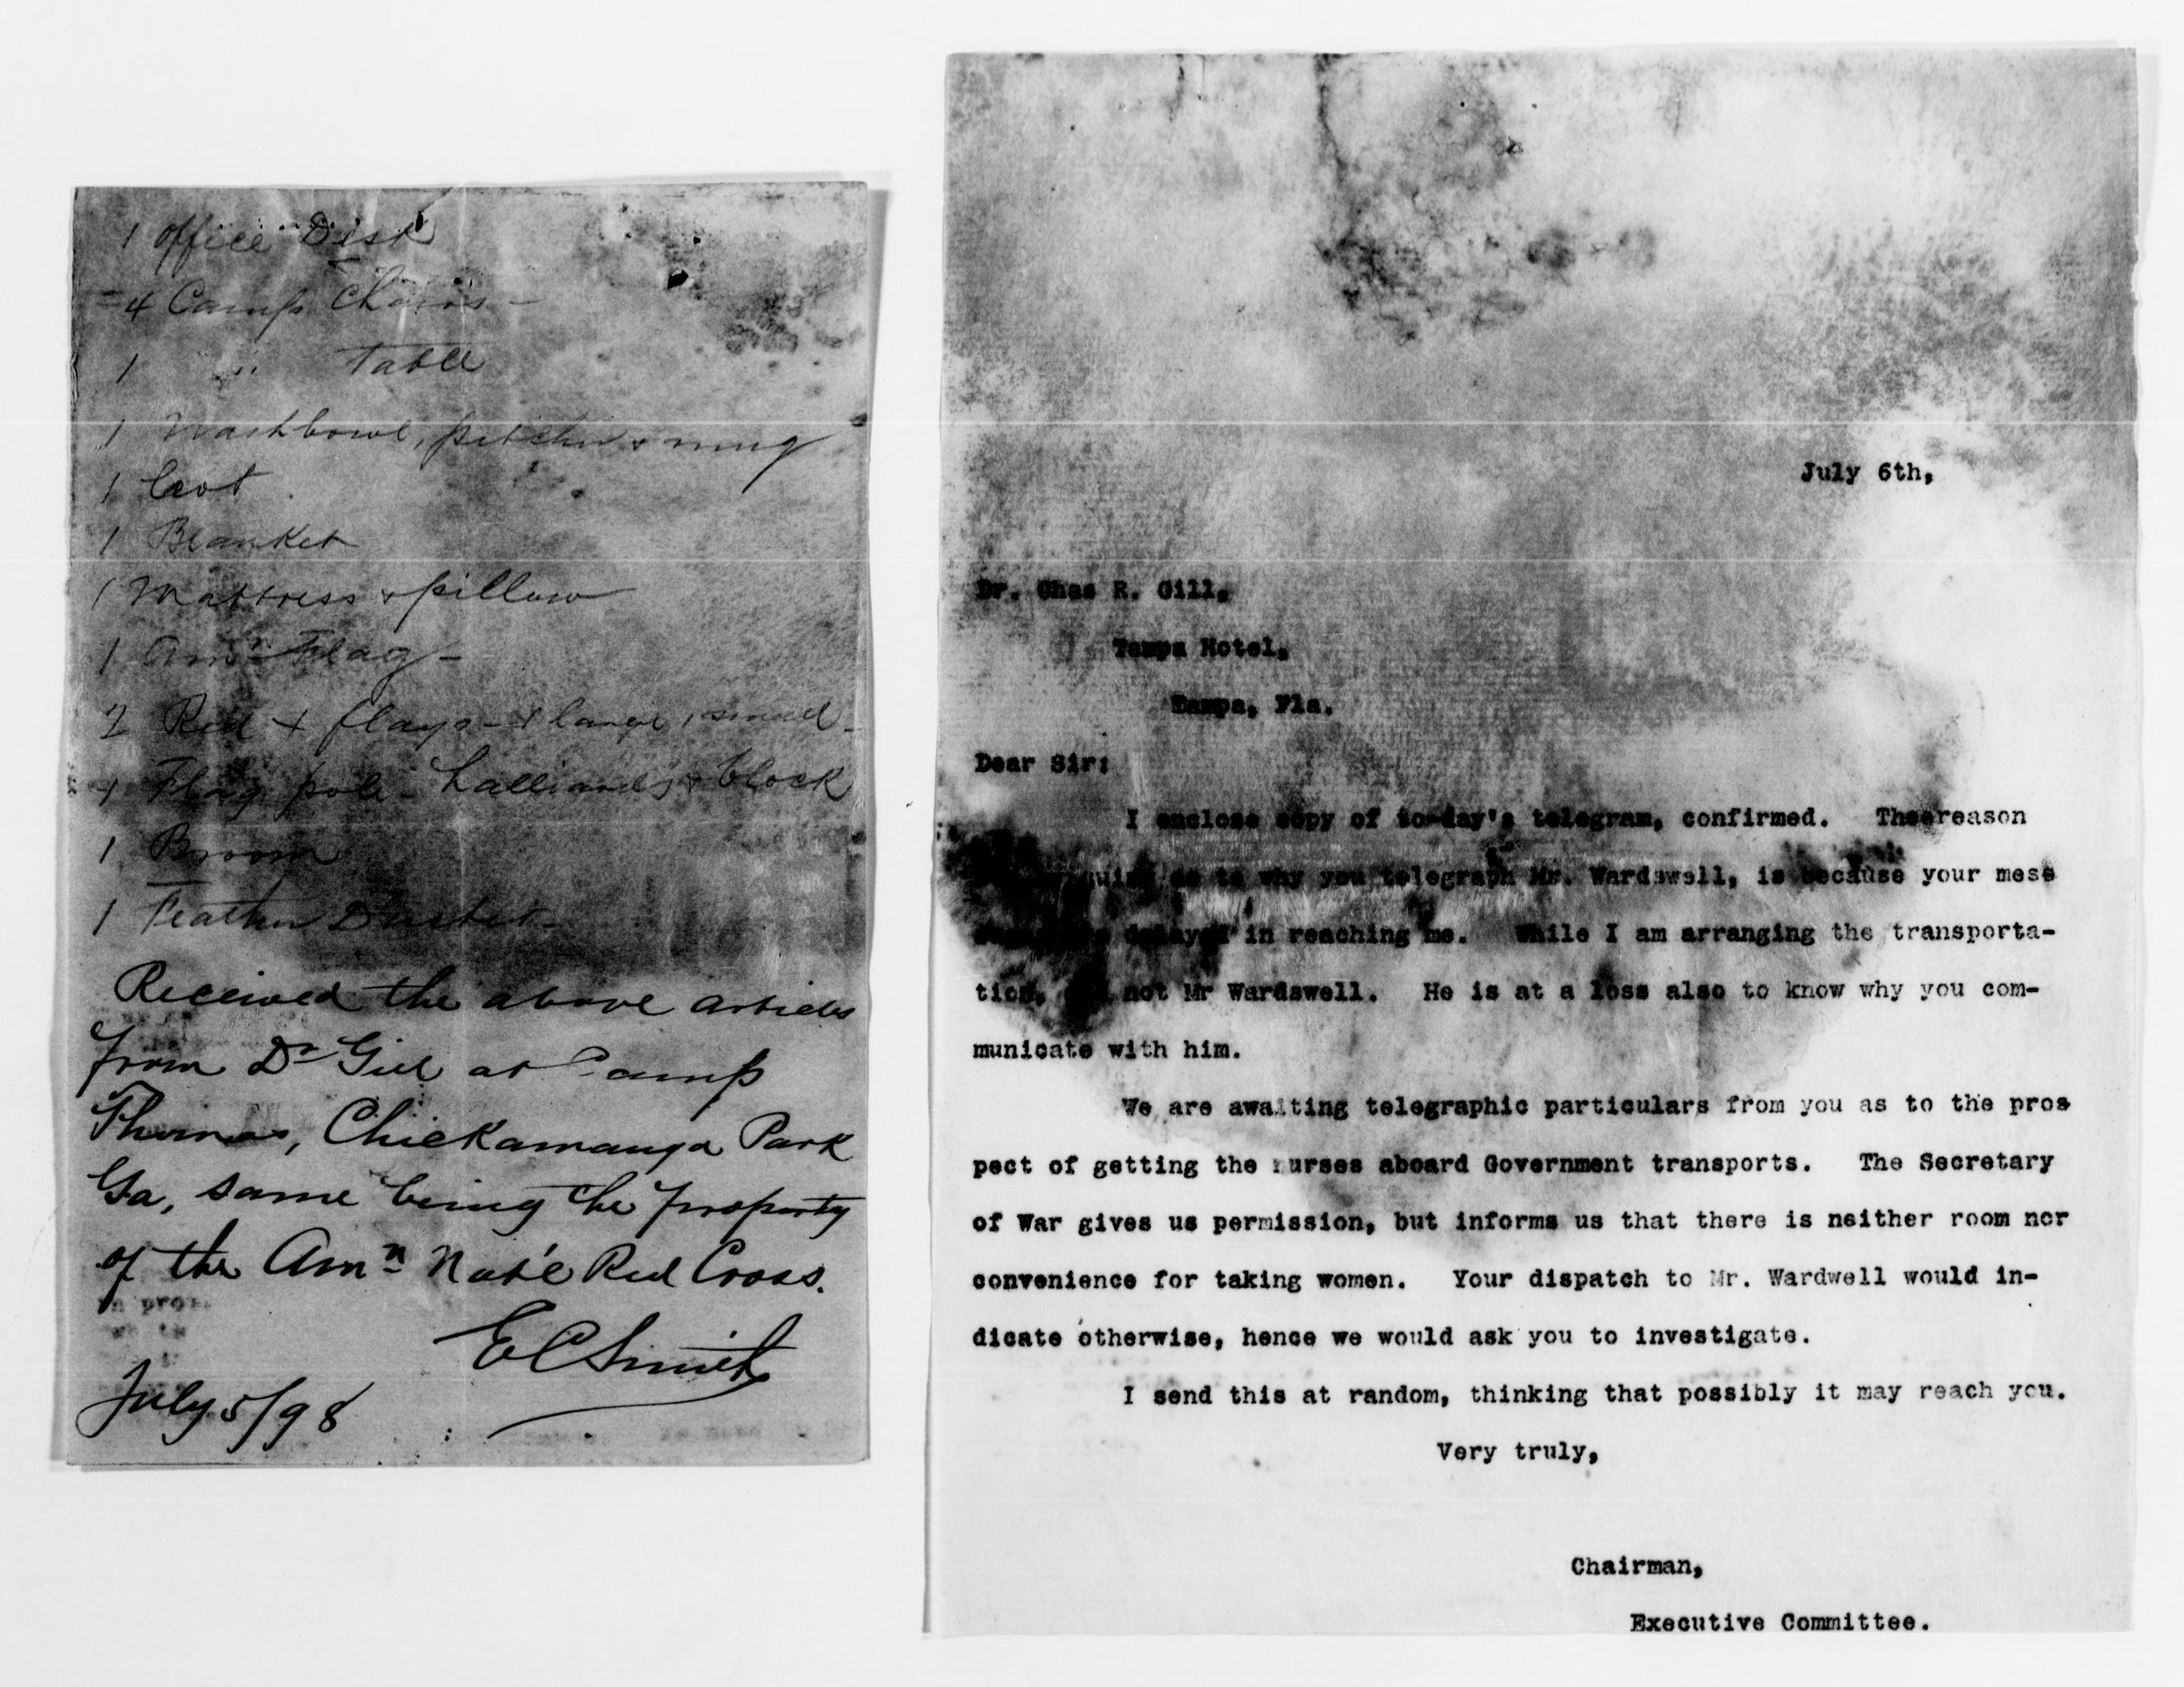 1 office Desk
4 Camp Chairs -
1 " Table
1 Washbowl, pitcher & mug
1 Coot
1 Blanket
1 Mattress & pillow
1 Amn Flag -
2 Red + flags - 1 large, 1 small -
1 Flag pole - halliards & block
1 Broom
1 Feather Duster -
Received the above articles
from Dr Gill at Camp
Thomas, Chickamauga Park
Ga, same being the property
of the Amn Nat'l Red Cross.
E C Smith
July 5/98
July 6th,
Dr. Chas R. Gill,
Tampa Hotel,
Tampa, Fla.
Dear Sir:
I enclose copy of to-day's telegram, confirmed. Theereason
as to why you telegraph Mr. Wardswell, is because your mess
delayed in reaching me. While I am arranging the transporta-
tion, not Mr Wardswell. He is at a loss also to know why you com-
municate with him.
We are awaiting telegraphic particulars from you as to the pros
pect of getting the nurses aboard Government transports. The Secretary
of War gives us permission, but informs us that there is neither room nor
convenience for taking women. Your dispatch to Mr. Wardwell would in-
dicate otherwise, hence we would ask you to investigate.
I send this at random, thinking that possibly it may reach you.
Very truly,
Chairman,
Executive Committee.